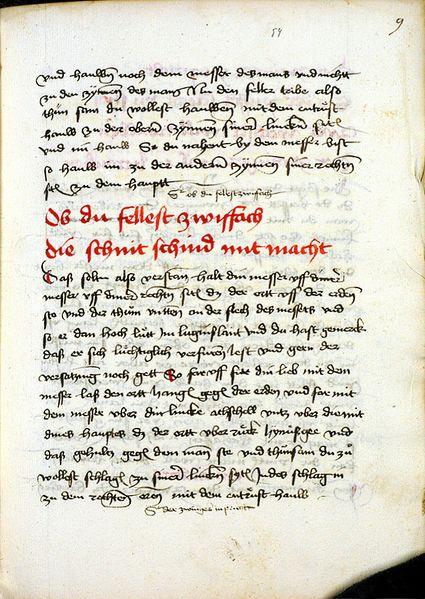 9
und hauwen noch dem messer des mans und nicht
zu den zynnen des mans Nu den feller tribe also
thun sam du wollest hauwen mit dem entrust
hauw zu der obern zynnen siner lincken sytt
und im hauw So du nahent by dem messer bist
so hauw im zu der andern zynnen siner rechten
sitt zu dem haupt
Ob du fellest zwiffach
die schnit schnid mit macht
Das soltu also verstan halt din messer uff diner
messer uff diner rechten sitt das der ortt uff der erden
sto und der thum unten an der flech des messers und
so er dan hoch lutt im luginslant und du hast gemerck
das er sich luchtiglich verfuren lest und gern der
versatzung noch gett So far uff sitt din lib mit dem
messer las den ortt hangen gegen der erden und far mit
dem messer uber din lincke achschell untz uber die mit
dines hauptes das der ortt uber ruck hynusgee und
das gehultz gegen dem man ste und thun sam du zu
wollest schlagen zu siner lincken sytt Indes schlag in
zu dem rechten oren mit dem entrust hauw